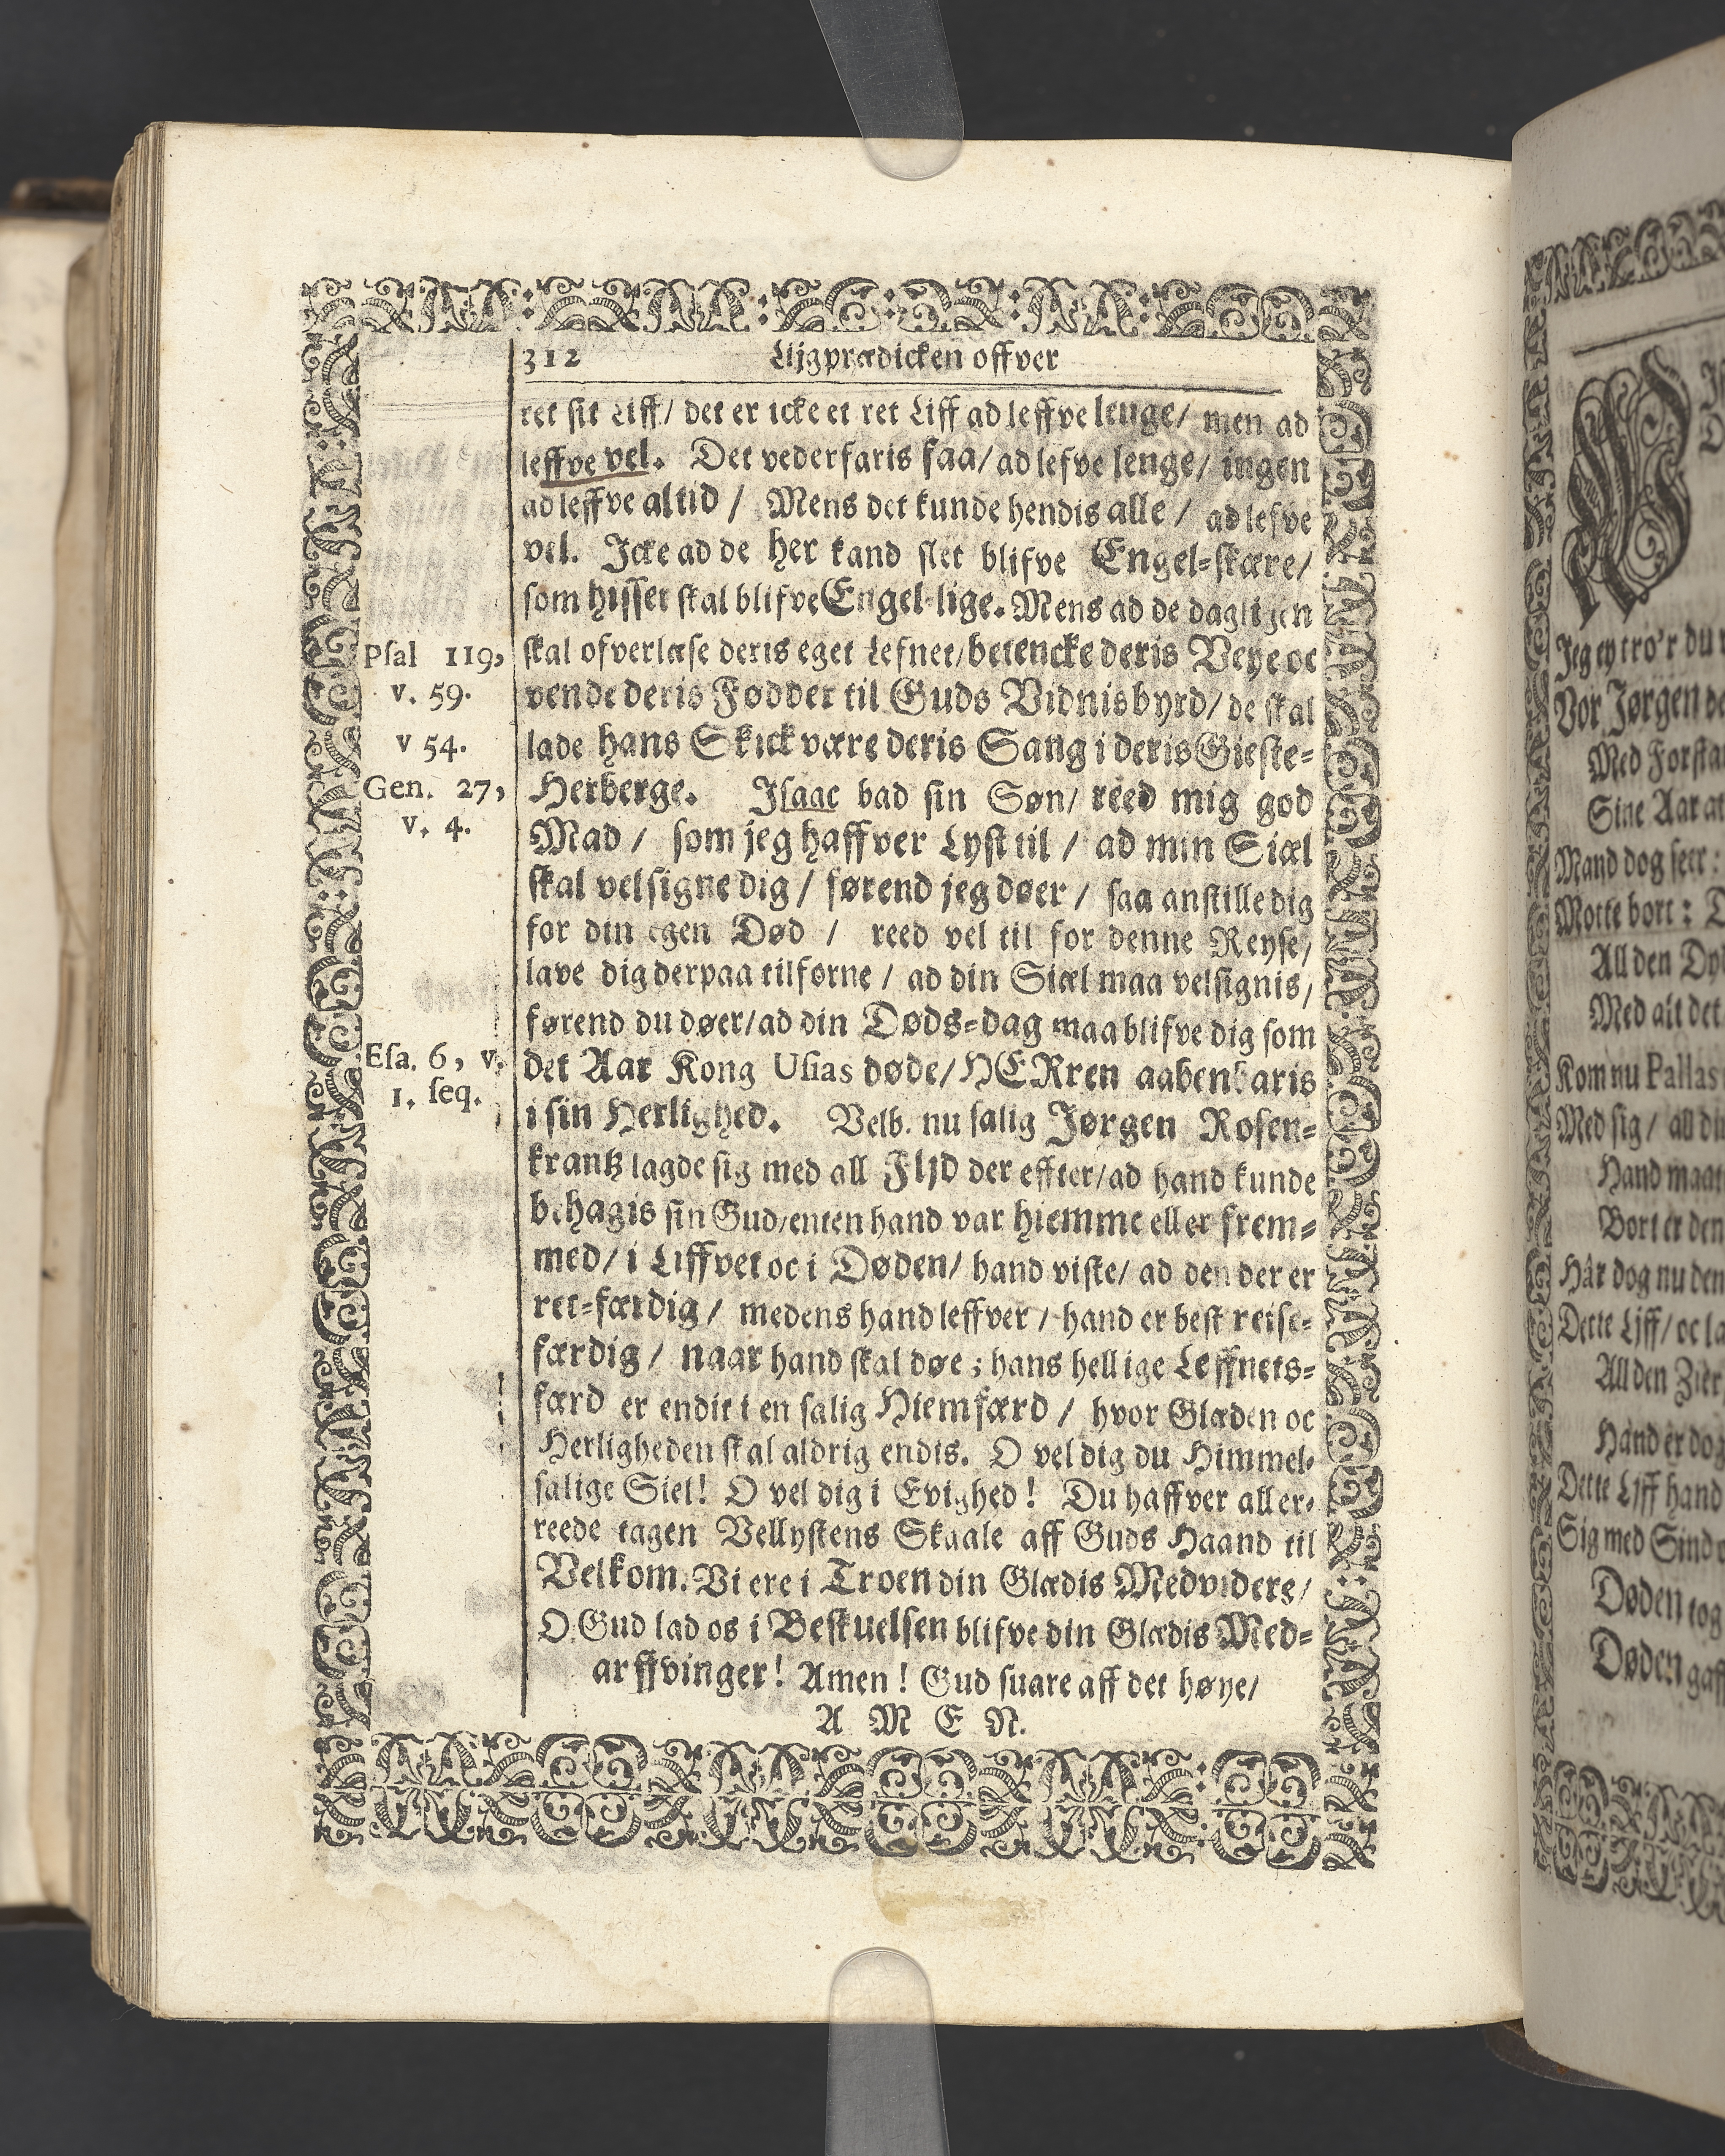 312 Lijgprædicken offver
ret sit Liff/ det er icke et ret Liff ad leffve lenge/ men ad
leffve vel. Det vederfaris faa/ ad lefve lenge/ ingen
ad leffve altid / Mens det kunde hendis alle / ad lefve
vel. Icke ad de her kand slet blifve Engel-skære/
som hisset skal blifve Engel-lige. Mens ad de dagligen
Psal 119,
v. 59.
skal ofverlæse deris eget Lefnet/ betencke deris Veye oc
vende deris Fødder til Guds Vidnisbyrd/ de skal
v 54.
lade hans Skick være deris Sang i deris Gieste-
Gen. 27,
v. 4.
Herberge. Isaac bad sin Søn/ reed mig god
Mad / som jeg haffver Lyst til / ad min Siæl
skal velsigne dig / førend jeg døer / saa anstille dig
for din egen Død / reed vel til for denne Reyse/
lave dig derpaa tilforne / ad din Siæl maa velsignis/
førend du døer/ ad din Døds-dag maa blifve dig som
Esa. 6, v.
1. seq.
det Aar Kong Usias døde/ HERren aabenbaris
i sin Herlighed. Velb. nu salig Jørgen Rosen-
krantz lagde sig med all Flid der effter/ ad hand kunde
behagis sin Gud/ enten hand var hiemme eller frem-
med/ i Liffvet oc i Døden/ hand viste/ ad den der er
ret-færdig / medens hand leffver / hand er best reise-
færdig / naar hand skal døe ; hans hellige Leffnets-
færd er endit i en salig Hiemfærd / hvor Glæden oc
Herligheden skal aldrig endis. O vel dig du Himmel-
salige Siel! O vel dig i Evighed! Du haffver aller-
reede tagen Vellystens Skaale aff Guds Haand til
Velkom. Vi ere i Troen din Glædis Medvidere/
O Gud lad os i Beskuelsen blifve din Glædis Med-
arffvinger! Amen! Gud suare aff det høye/
A M E N.
Jeg ey tro'r du
Vor Jørgen
Med
Sine Aar
Mand dog
Motte bort:
All den
Med alt det
Kom nu Pallas
Med sig/
Hand
Bort er den
Hår dog nu den
Dette Liff/ oc
All den
Hand er dog
Dette Liff hand
Sig med
Døden tog
Døden gaff